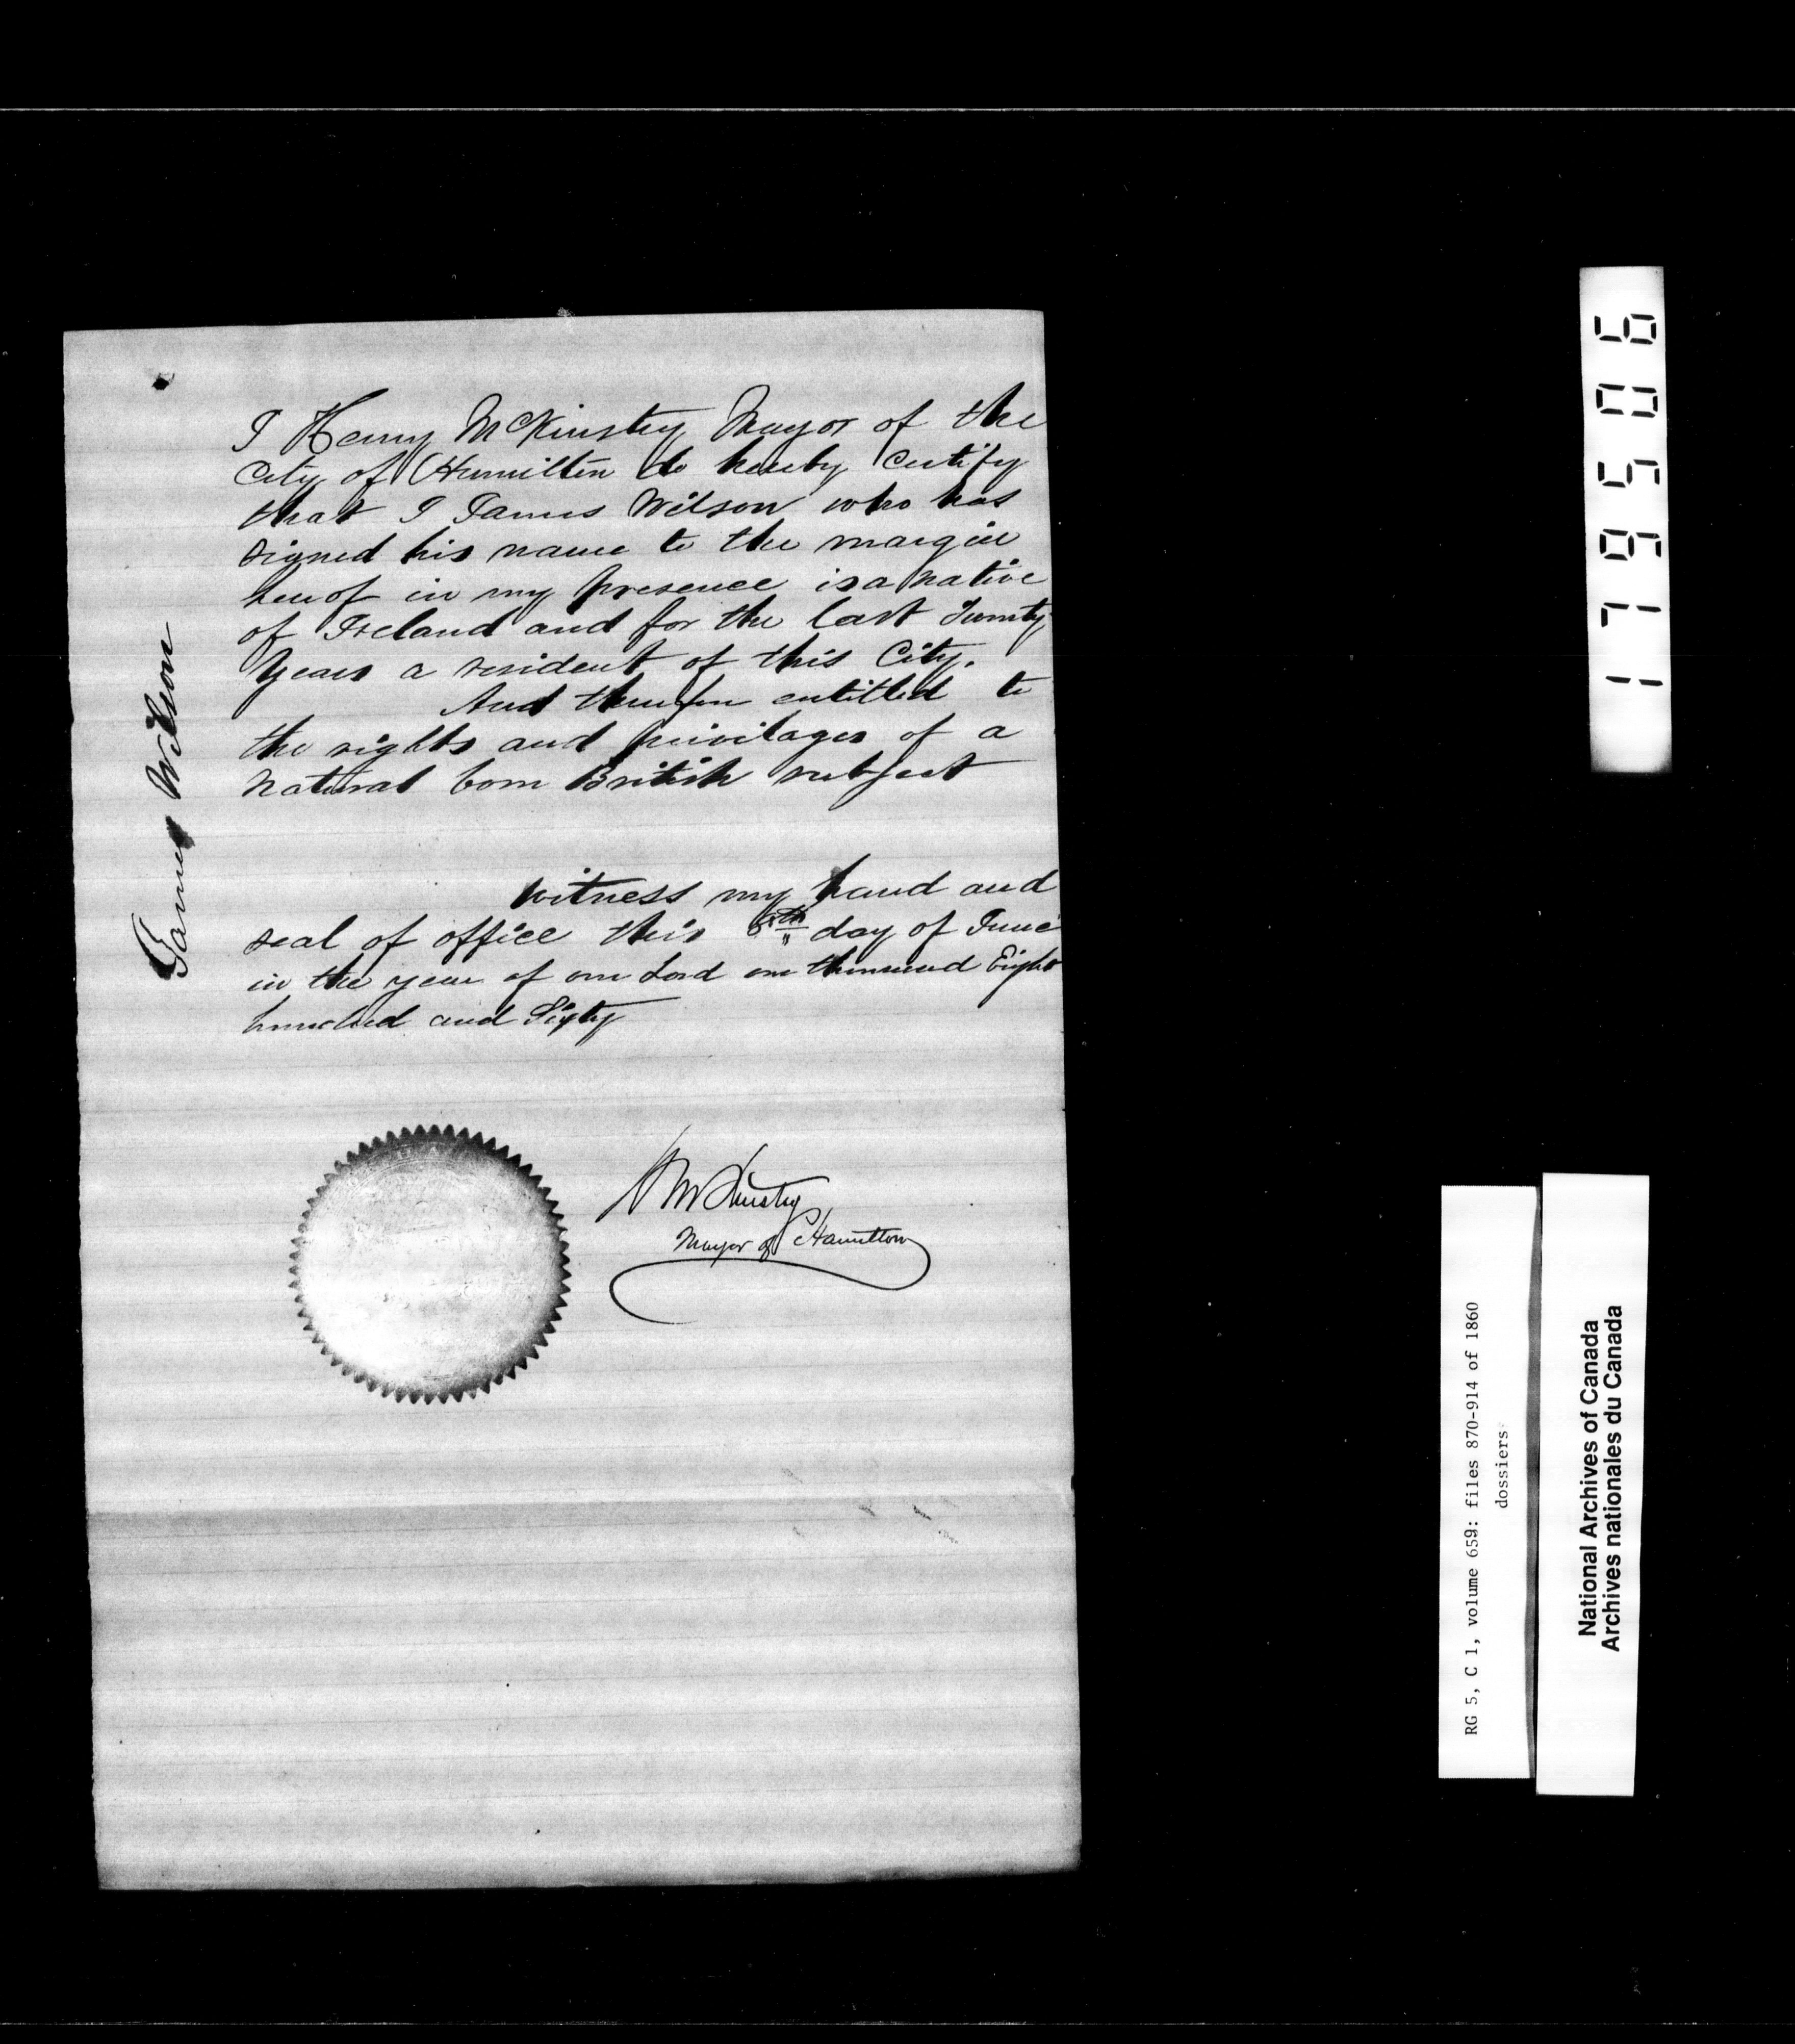 I Henry McKinstry Mayor of the
City of Hamilton do hereby Certify
that I James Wilson who has
signed his name to the margin
hereof in my presence is a native
of Ireland and for the last Twenty
years a resident of this City.
And therefore entitled to
the rights and privilages of a
natural born British subject
Witness my hand and
seal of office this 8th day of June
in the year of our Lord one thousand Eight
hundred and Sixty
H McKinstry
Mayor of Hamilton
James Wilson
179506
RG 5, C 1, volume 659: files 870-914 of 1860
dossiers
National Archives of Canada
Archives nationales du Canada